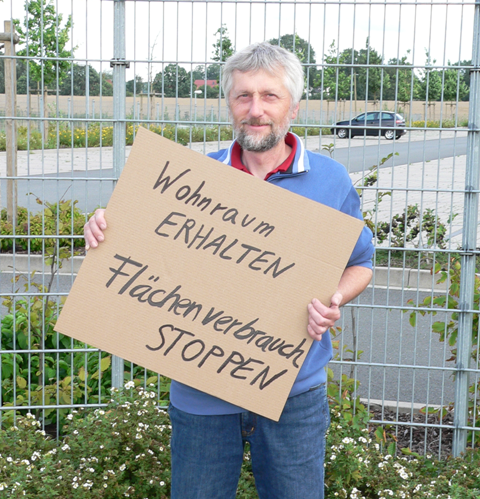 Wohnraum
ERHALTEN
Flächenverbrauch
STOPPEN